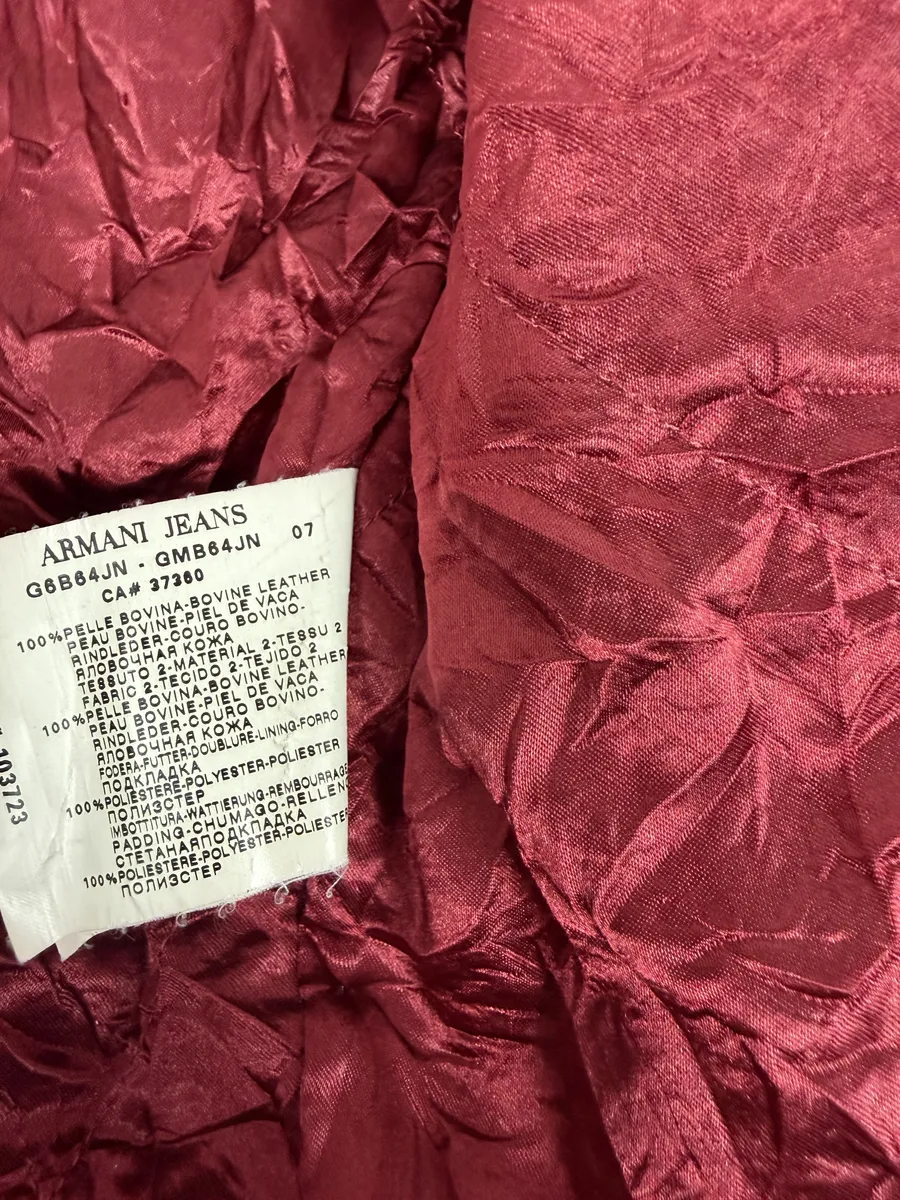 ARMANI JEANS
G6B64JN - GMB64JN 07
CA# 37360
100%PELLE BOVINA-BOVINE LEATHER
PEAU BOVINE-PIEL DE VACA
RINDLEDER-COURO BOVINO-
ЯЛОВОЧНАЯ КОЖА
TESSUTO 2-MATERIAL 2-TESSU 2
FABRIC 2-TECIDO 2-TEJIDO 2
100%PELLE BOVINA-BOVINE LEATHER
PEAU BOVINE-PIEL DE VACA
RINDLEDER-COURO BOVINO-
ЯЛОВОЧНАЯ КОЖА
FODERA-FUTTER-DOUBLURE-LINING-FORRO
ПОДКЛАДКА
100%POLIESTERE-POLYESTER-POLIESTER
ПОЛИЭСТЕР
IMBOTTITURA-WATTIERUNG-REMBOURRAGE
PADDING-CHUMAÇO-RELLENO
СТЕГАНАЯПОДКЛАДКА
100%POLIESTERE-POLYESTER-POLIESTER
ПОЛИЭСТЕР
103723